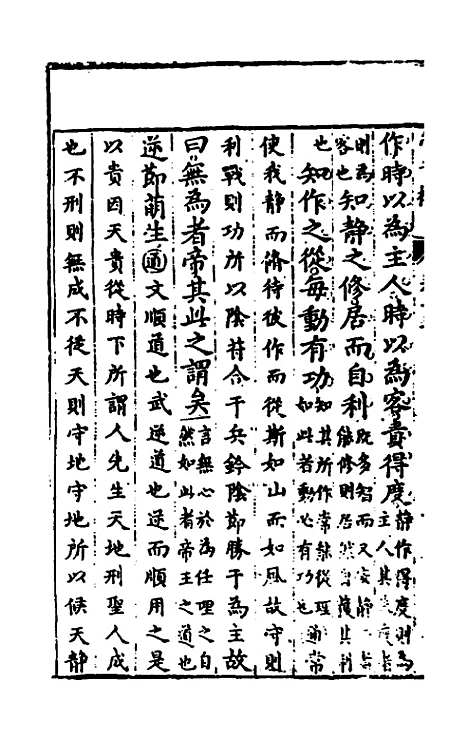 作時以為主人時以為客貴得度静作得度則為主人其度
則為客也知静之修居而自利既多智而又安静能修則居然自獲其利
也知作之從每動有功知其所作常能從理如此者動必有功也
使我静而脩待彼作而從斯如山而如風故守則
利戰則功所以陰符合于兵鈐陰節勝于為主故
曰無為者帝其此之謂矣言無心於為任理之自然如此者帝王之道也
逆節萌生通文順道也武逆道也逆而順用之是
以貴因天貴從時下所謂人先生天地刑聖人成
也不刑則無成不從天則守地守地所以候天静